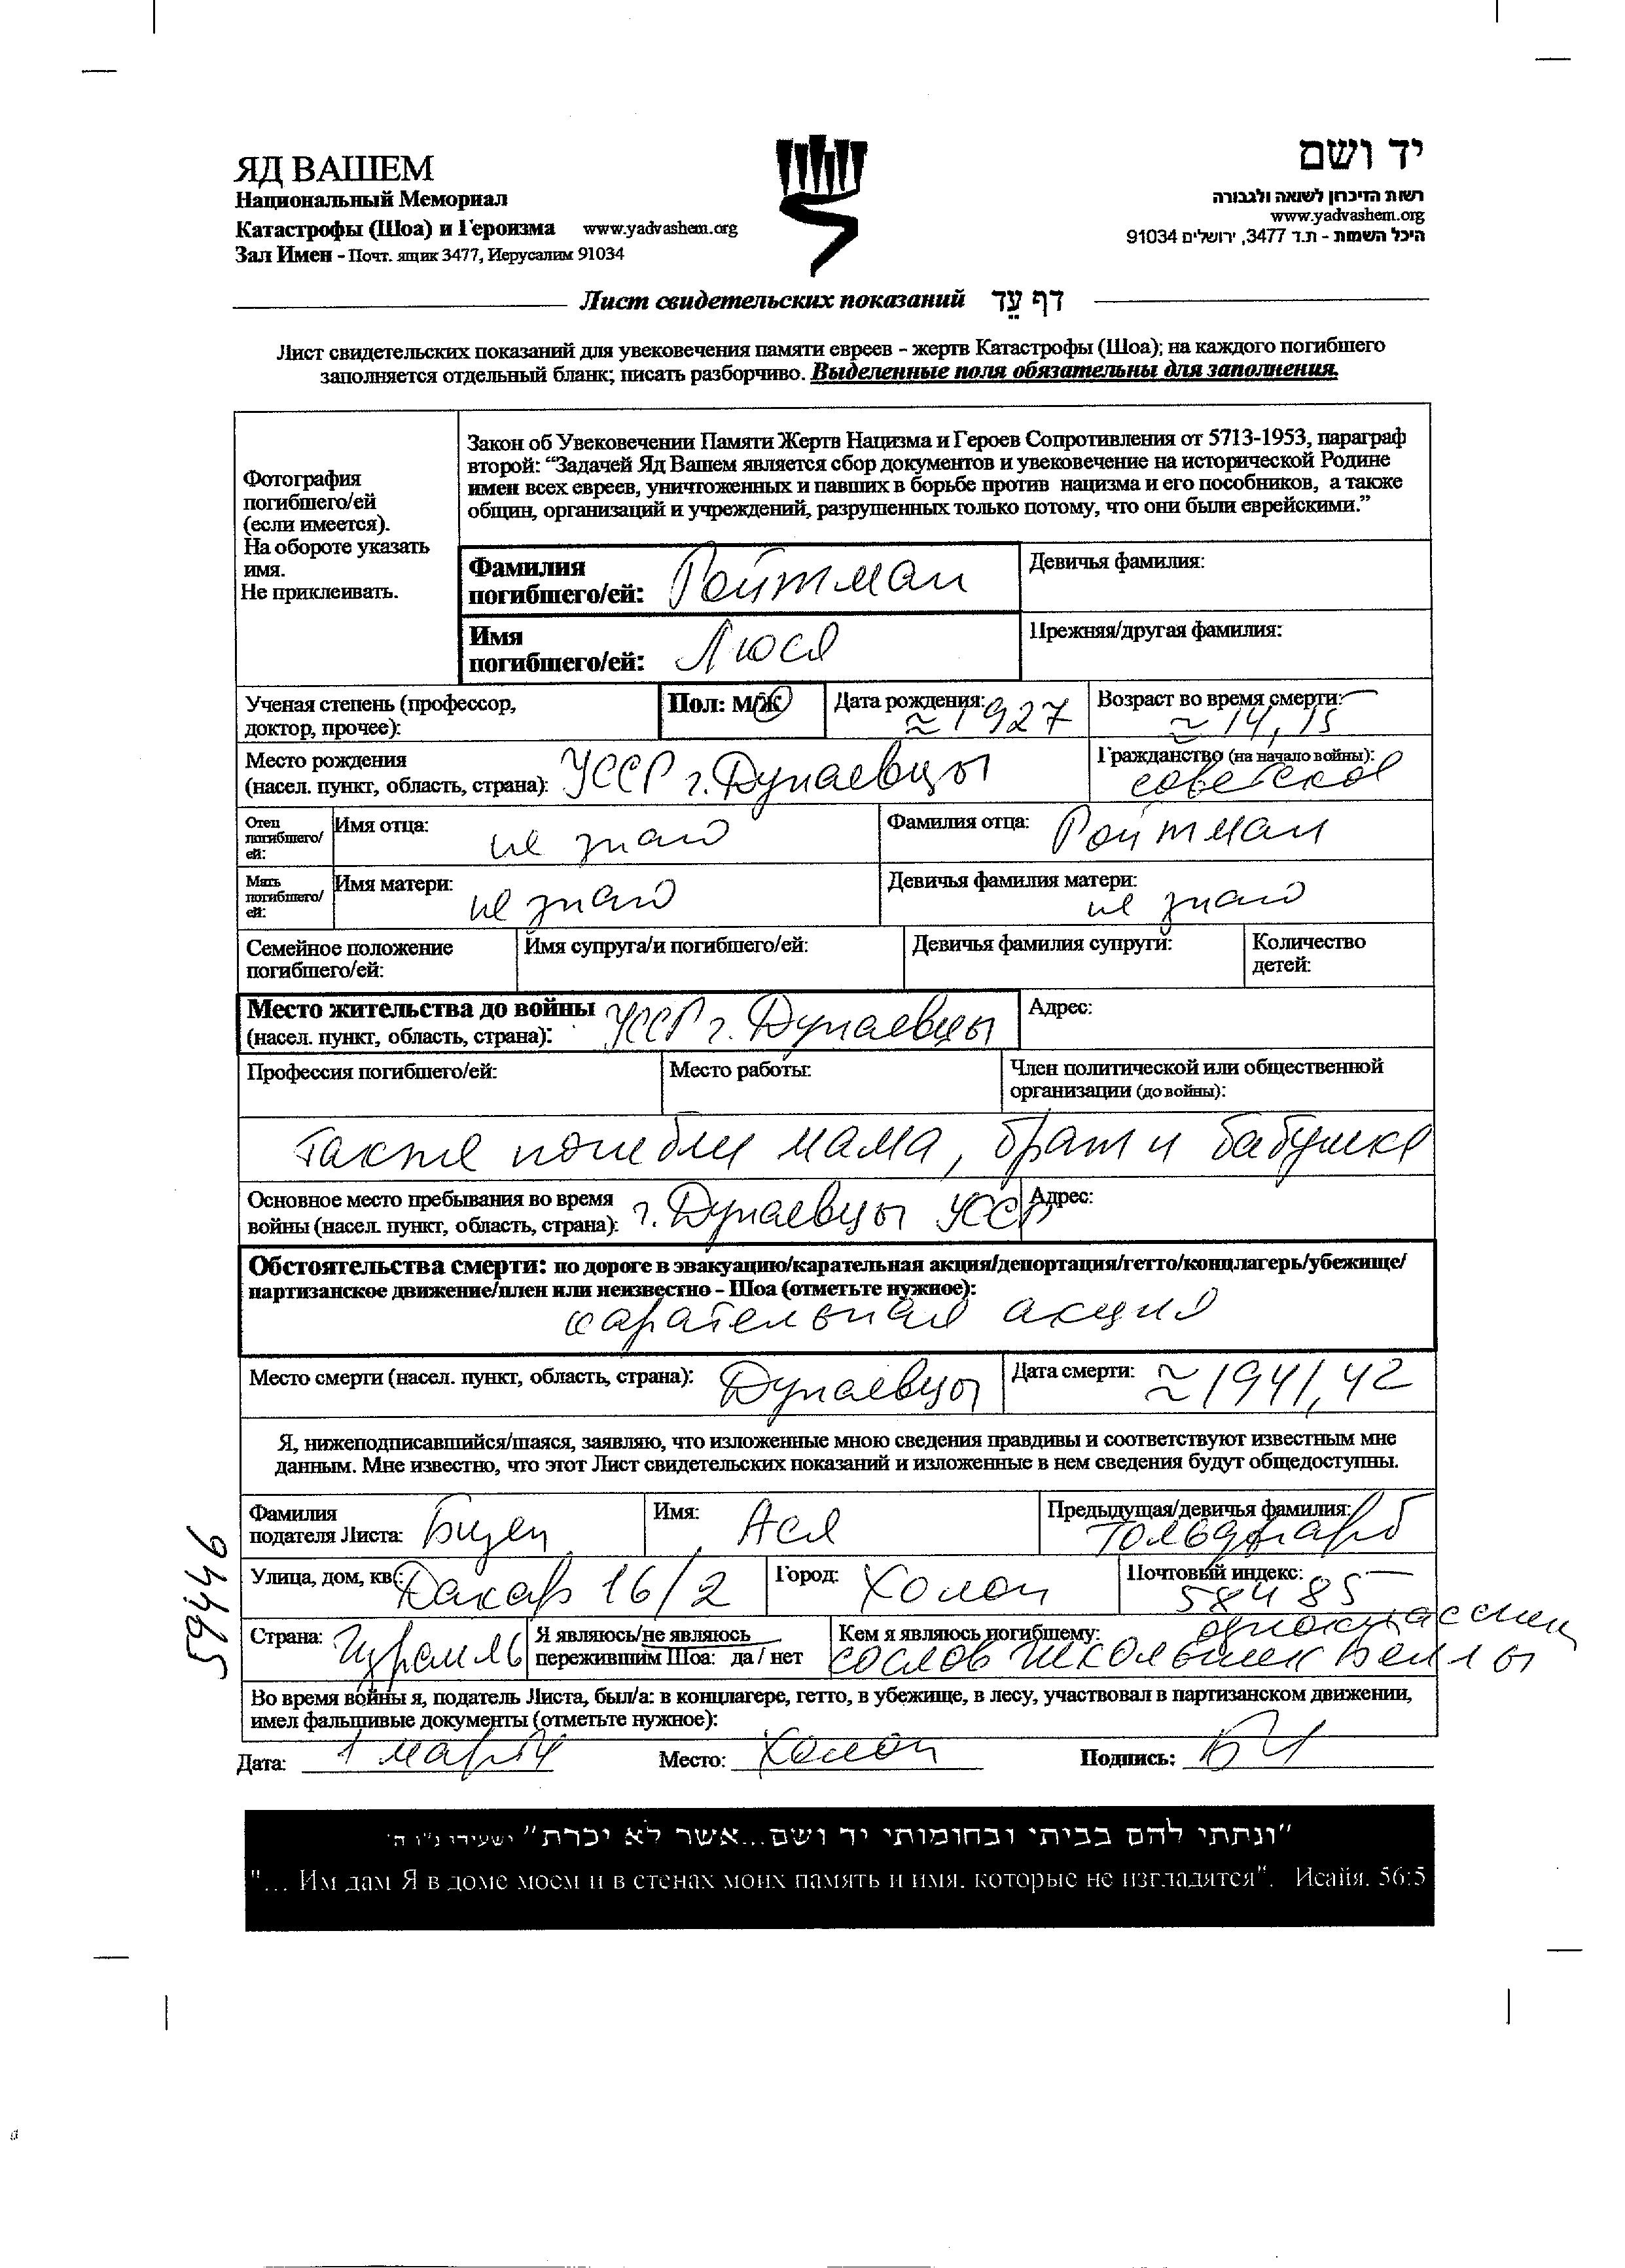 ЯД ВАШЕМ
Национальный Мемориал
Катастрофы (Шоа) и Героизма www.yadvashem.org
Зал Имен - Почт. ящик 3477, Иерусалим 91034
יד ושם
רשות הזיכרון לשואה ולגבורה
www.yadvashem.org
היכל השמות - ת.ד 3477, ירושלים 91034
Лист свидетельских показаний דף עֵד
Лист свидетельских показаний для увековечения памяти евреев - жертв Катастрофы (Шоа); на каждого погибшего
заполняется отдельный бланк; писать разборчиво. Выделенные поля обязательны для заполнения.
Фотография
погибшего/ей
(если имеется).
На обороте указать
имя.
Не приклеивать.
Закон об Увековечении Памяти Жертв Нацизма и Героев Сопротивления от 5713-1953, параграф
второй: “Задачей Яд Вашем является сбор документов и увековечение на исторической Родине
имен всех евреев, уничтоженных и павших в борьбе против нацизма и его пособников, а также
общин, организаций и учреждений, разрушенных только потому, что они были еврейскими.”
Фамилия
погибшего/ей: Ройтман
Девичья фамилия:
Имя
погибшего/ей: Люся
Прежняя/другая фамилия:
Ученая степень (профессор,
доктор, прочее):
Пол: М/Ж
Дата рождения: ≈ 1927
Возраст во время смерти: ≈ 14, 15
Место рождения
(насел. пункт, область, страна): УССР г. Дунаевцы
Гражданство (на начало войны):
советское
Отец
погибшего/
ей:
Имя отца: не знаю
Фамилия отца: Ройтман
Мать
погибшего/
ей:
Имя матери: не знаю
Девичья фамилия матери: не знаю
Семейное положение
погибшего/ей:
Имя супруга/и погибшего/ей:
Девичья фамилия супруги:
Количество
детей:
Место жительства до войны
(насел. пункт, область, страна): УССР г. Дунаевцы
Адрес:
Профессия погибшего/ей:
Место работы:
Член политической или общественной
организации (до войны):
также погибли мама, брат и бабушка
Основное место пребывания во время
войны (насел. пункт, область, страна): г. Дунаевцы УССР
Адрес:
Обстоятельства смерти: по дороге в эвакуацию/карательная акция/депортация/гетто/концлагерь/убежище/
партизанское движение/плен или неизвестно - Шоа (отметьте нужное):
карательная акция
Место смерти (насел. пункт, область, страна): Дунаевцы
Дата смерти: ≈ 1941, 42
Я, нижеподписавшийся/шаяся, заявляю, что изложенные мною сведения правдивы и соответствуют известным мне
данным. Мне известно, что этот Лист свидетельских показаний и изложенные в нем сведения будут общедоступны.
Фамилия
подателя Листа: Бицен
Имя: Ася
Предыдущая/девичья фамилия:
Гольдфарб
Улица, дом, кв.: Дакар 16/2
Город: Холон
Почтовый индекс:
58485
59446
Страна: Израиль
Я являюсь/не являюсь
пережившим Шоа: да / нет
Кем я являюсь погибшему:
со слов
Во время войны я, податель Листа, был/а: в концлагере, гетто, в убежище, в лесу, участвовал в партизанском движении,
имел фальшивые документы (отметьте нужное):
Дата: 1 марта
Место: Холон
Подпись:
"ונתתי להם בביתי ובחומותי יד ושם...אשר לא יכרת" ישעיהו נ"ו ה'
"... Им дам Я в доме моем и в стенах моих память и имя. которые не изгладятся". Исайя. 56:5